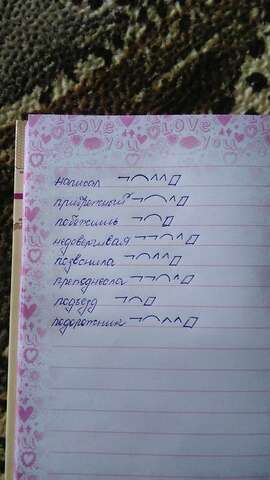 LOVE you LOVE you
написал ¬⌒^^▱
прибрежный ¬⌒^▱
побежишь ¬⌒▱
недоверчивая ¬¬⌒^▱
позвонила ¬⌒^^▱
преподнесла ¬¬⌒^▱
подъезд ¬⌒▱
подорожник ¬⌒^^▱